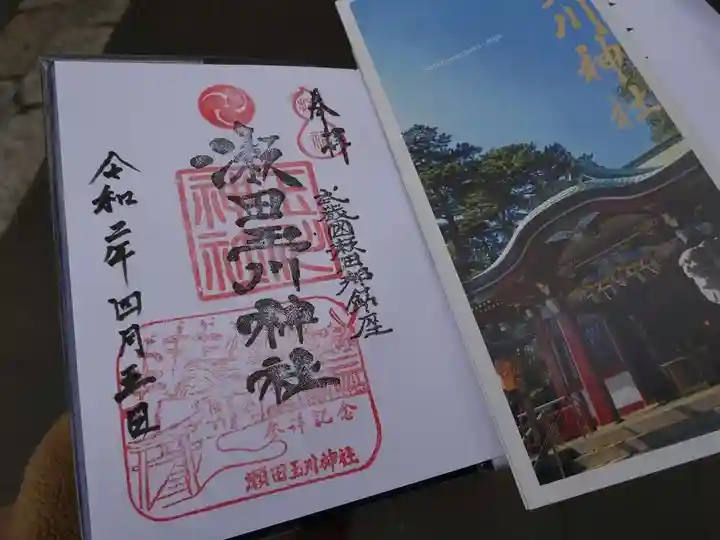 奉拝
武蔵国瀬田郷鎮座
瀬田玉川神社
令和二年四月五日
参拝記念
瀬田玉川神社
川神社